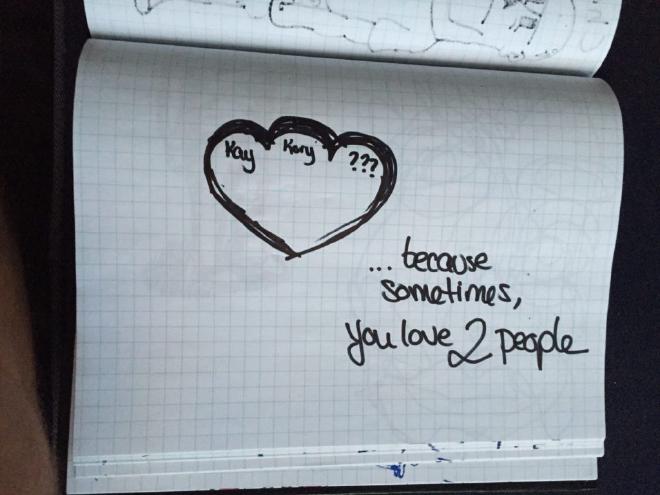 Kay Kory ???
... because
sometimes,
you love 2 people